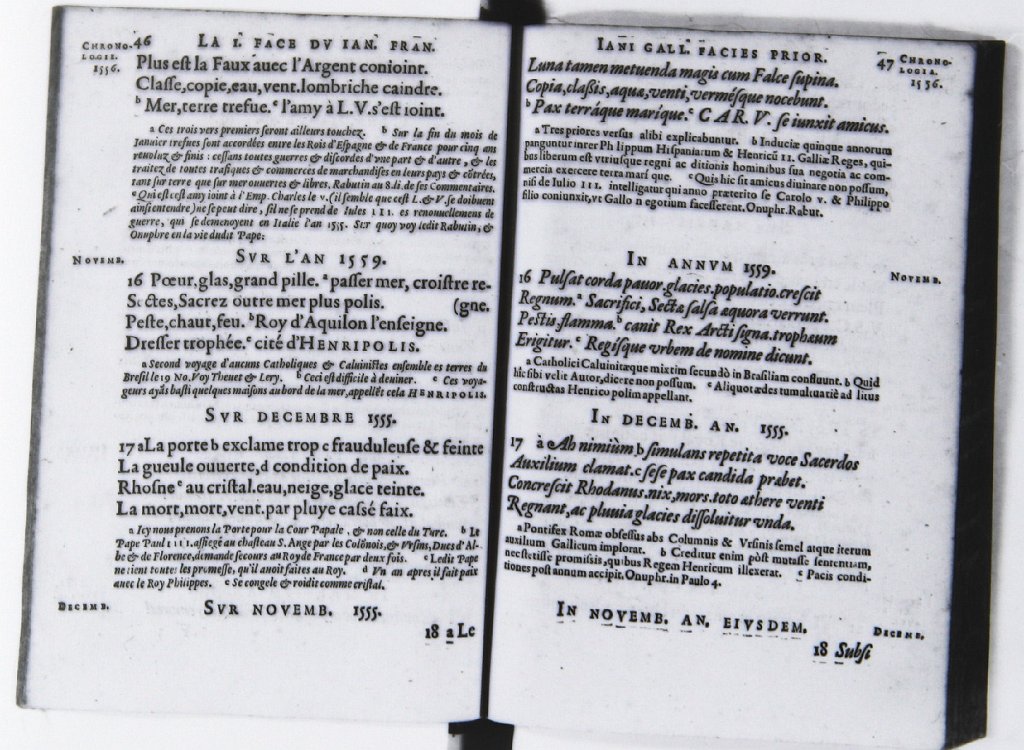 CHRONO- 46 LA I. FACE DV IAN. FRAN.
LOGIE.
1556.
Plus est la Faux auec l'Argent conioint.
Classe, copie, eau, vent. lombriche caindre.
b Mer, terre trefue. c l'amy à L. V. s'est ioint.
a Ces trois vers premiers seront ailleurs touchez. b Sur la fin du mois de
Ianuier trefues sont accordées entre les Rois d'Espagne & de France pour cinq ans
reuoluz & finis: cessans toutes guerres & discordes d'vne part & d'autre, & les
traitez de toutes trafiques & commerces de marchandises en leurs pays & côtrées,
tant sur terre que sur mer ouuertes & libres. Rabutin au 8. li. de ses Commentaires.
c Qui est cest amy ioint à l'Emp. Charles le v. (il semble que cest L. & V. se doiuent
ainsi entendre) ne se peut dire, s'il ne se prend de Iules III. es renouuellemens de
guerre, qui se demenoyent en Italie l'an 1555. Sur quoy voy ledit Rabutin, &
Onuphre en la vie dudit Pape.
NOVEMB. SVR L'AN 1559.
16 Pœur, glas, grand pille. a passer mer, croistre re-
Sectes, Sacrez outre mer plus polis. (gne.
Peste, chaut, feu. b Roy d'Aquilon l'enseigne.
Dresser trophée. c cité d'HENRIPOLIS.
a Second voyage d'aucuns Catholiques & Caluinistes ensemble es terres du
Bresil le 19 No. Voy Theuet & Lery. b Ceci est difficile à deuiner. c Ces voya-
geurs ayãs basti quelques maisons au bord de la mer, appellêt cela HENRIPOLIS.
SVR DECEMBRE 1555.
17 a La porte b exclame trop c frauduleuse & feinte
La gueule ouuerte, d condition de paix.
Rhosne e au cristal. eau, neige, glace teinte.
La mort, mort, vent. par pluye cassé faix.
a Icy nous prenons la Porte pour la Cour Papale, & non celle du Turc. b Le
Pape Paul IIII. assiegé au chasteau S. Ange par les Colõnois, & Vrsins, Ducs d'Al-
be & de Florence, demande secours au Roy de France par deux fois. c Ledit Pape
ne tient toutes les promesse, qu'il auoit faites au Roy. d Vn an apres il fait paix
auec le Roy Philippes. e Se congele & roidit comme cristal.
DECEMB. SVR NOVEMB. 1555.
18 a Le
IANI GALL. FACIES PRIOR. 47 CHRONO-
LOGIA.
1556.
Luna tamen metuenda magis cum Falce supina.
Copia, classis, aqua, venti, vermésque nocebunt.
b Pax terráque marique. c CAR. V. se iunxit amicus.
a Tres priores versus alibi explicabuntur. b Induciæ quinque annorum
panguntur inter Philippum Hispaniarum & Henricũ II. Galliæ Reges, qui-
bus liberum est vtriusque regni ac ditionis hominibus sua negotia ac com-
mercia exercere terra mari que. c Quis hic sit amicus diuinare non possum,
nisi de Iulio III. intelligatur qui anno præterito se Carolo v. & Philippo
filio coniunxit, vt Gallo negotium facesserent. Onuphr. Rabut.
IN ANNVM 1559. NOVEMB.
16 Pulsat corda pauor. glacies. populatio. crescit
Regnum. a Sacrifici, Sectæ salsa æquora verrunt.
Pestis. flamma. b canit Rex Arcti signa. trophæum
Erigitur. c Regisque vrbem de nomine dicunt.
a Catholici Caluinitæque mixtim secundò in Brasiliam confluunt. b Quid
hîc sibi velit Autor, dicere non possum. c Aliquot ædes tumultuariè ad litus
constructas Henrico polim appellant.
IN DECEMB. AN. 1555.
17 a Ah nimiùm b simulans repetita voce Sacerdos
Auxilium clamat. c sese pax candida præbet.
Concrescit Rhodanus. nix, mors. toto æthere venti
Regnant, ac pluuia glacies dissoluitur vnda.
a Pontifex Romæ obsessus abs Columnis & Vrsinis semel atque iterum
auxilium Gallicum implorat. b Creditur enim pòst mutasse sententiam,
nec stetisse promissis, quibus Regem Henricum illexerat. c Pacis condi-
tiones post annum accipit. Onuphr. in Paulo 4.
IN NOVEMB. AN. EIVSDEM. DECEMB.
18 Subsi